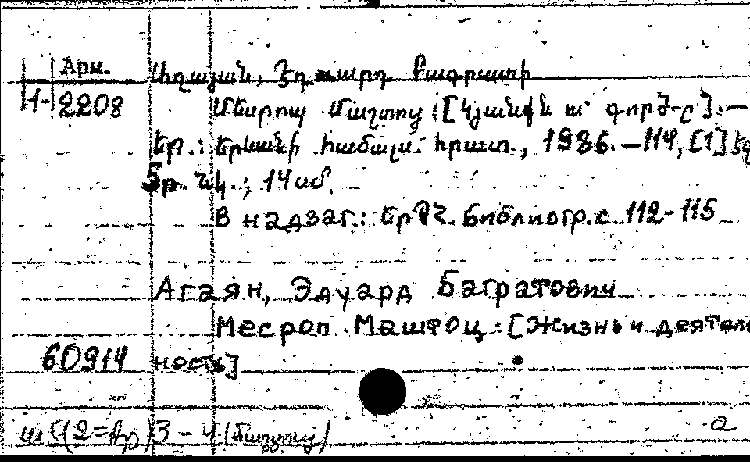 Արм.
Աղայան, Էդուարդ Բագրատի
Ա- 2208
Մեսրոպ Մաշտոց: [Կյանքն ու գործ-ը]. —
Եր.: Երևանի համալս. հրատ., 1986. — 114, [1] էջ
5 ր. նկ.; 14 սմ.
В надзаг.: ԵրՊՀ. Библиогр. с. 112-115
Агаян, Эдуард Багратович
Месроп Маштоц: [Жизнь и деятель-
60914 ность]
3 – 4 (Մաշտոց) а